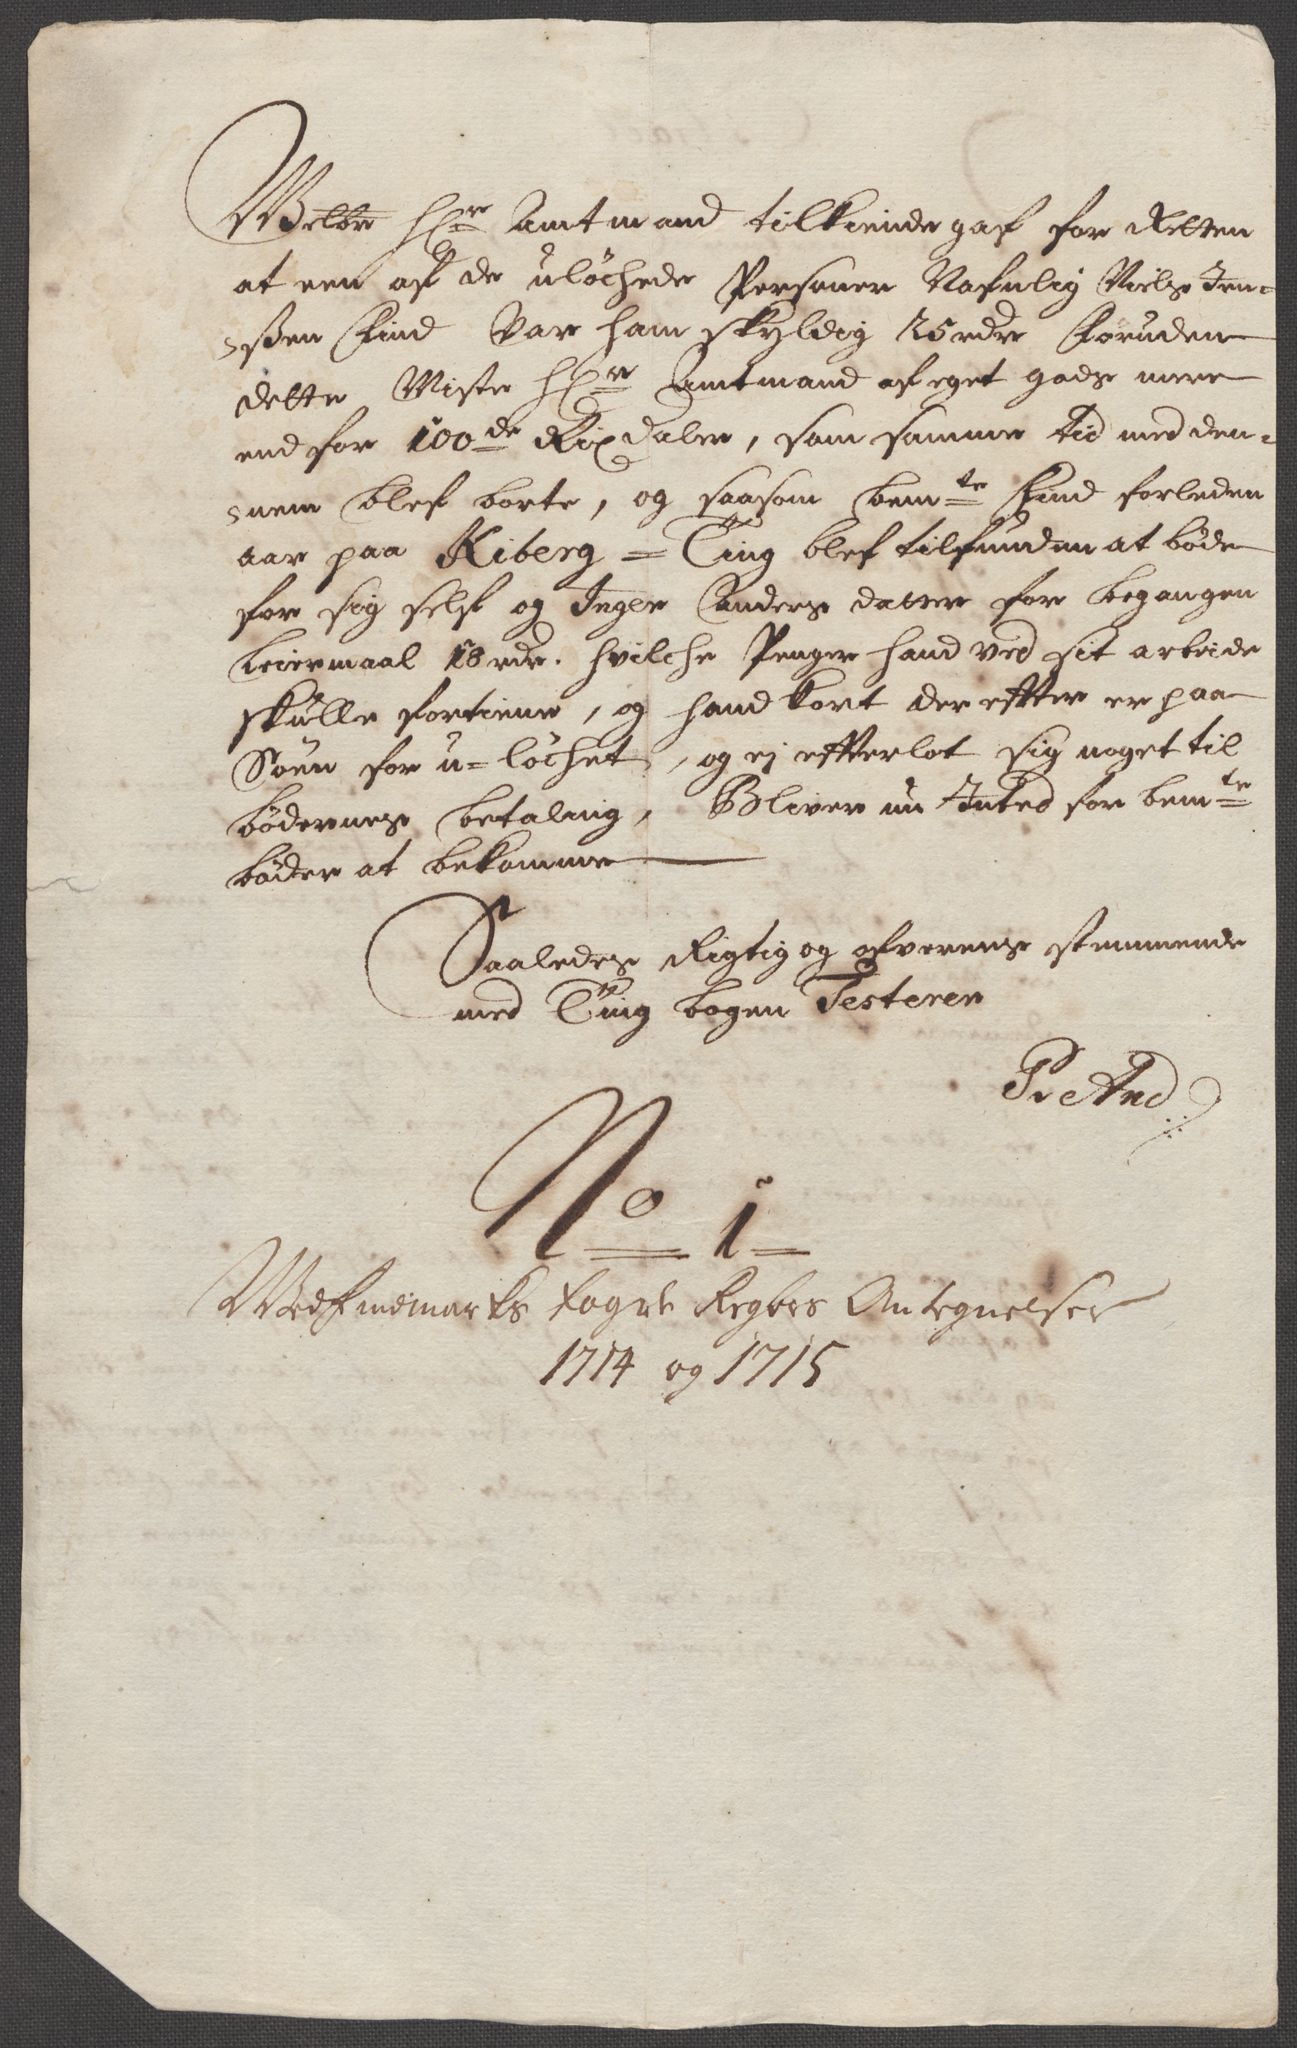 Welbr H:r Amtmand tilkiende gaf for Retten
at een af de ulöchede Personer Nafnlig Niels Jen-
ßen Find Var ham skyldig 25 rdr Foruden
dette Miste H:r Amtmand af eget gods mere
end for 100de Rixdaler, som samme tid med den-
nem blef borte, og saasom bemte Find forleden
aar paa Kiberg-Ting blef tilfunden at böde
for sig self og Inger Anders datter for begangen
leiermaal 18 rdr. hvilche Penger hand ved sit arbeide
skulle fortiene, og hand kort der effter er paa
Söen for u-löchet, og ej effterlot sig noget til
bödernes betaling, Bliver nu Inted for bemte
böder at bekomme
Saaledes Rigtig og ofverens stemmende
med Ting bogen Testerer
P: And
No 1
Ved Findmarks fogde Regbrs Antegnelser
1714 og 1715